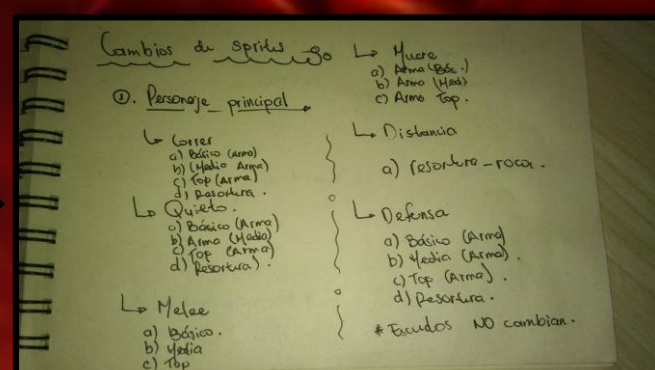 Cambios de sprites
①. Personaje principal
↳ Correr
a) Básico (Arma)
b) (Media Arma)
c) Top (Arma)
d) Resortera.
↳ Quieto.
a) Básico (Arma)
b) Arma (Media)
c) Top (Arma)
d) Resortera).
↳ Melee
a) Básico.
b) Media
c) Top
↳ Muere
a) Arma (Bás.)
b) Arma (Med)
c) Arma Top.
↳ Distancia
a) resortera-roca.
↳ Defensa
a) Básico (Arma)
b) Media (Arma).
c) Top (Arma).
d) Resortera.
* Escudos NO cambian.